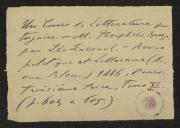 Un Cours de Littérature por-
tugaise — M. Theophilo Braga
par Léo Quesnel — Revue
politique et littéraire (Re-
vue Bleue) 1886, Paris.
Troisième série, Tome XI.
(p. 602 a 605)